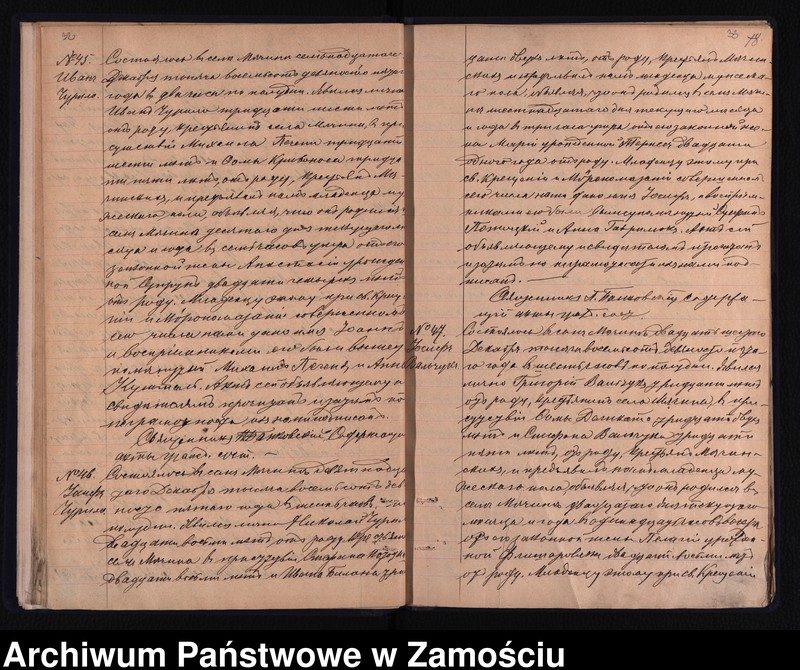 32
№45.
Иванъ
Чурило
Состоялось въ селѣ Мячинѣ семнадцатаго
Декабря тысяча восемьсотъ девяносто пятаго
года въ два часа по полудни. Явился лично
Иванъ Чурило тридцати шести лѣтъ
отъ роду, крестьянинъ села Мячина, въ при-
сутствіи Михаила Легкія тридцати
шести лѣтъ и Ѳомы Кривоноса тридца
ти пяти лѣтъ, отъ роду, крестьянъ Мя
чинскихъ, и предъявилъ намъ младенца му
жескаго пола, объявляя, что онъ родился
въ селѣ Мячинѣ десятаго дня текущаго мѣ
сяца и года въ семь часовъ утра отъ его
законной жены Анастасіи урожден
ной двадцати четырехъ лѣтъ
отъ роду. Младенцу этому при св. Креще
ніи и Мѵропомазаніи совершенномъ
сего числа дано имя Іоаннъ
и воспріемниками его были выше
помянутый Михаилъ Легкія и Анна
Актъ сей объявляющему и
свидѣтелямъ прочитанъ и за ихъ не
грамотностію нами подписанъ.
Священникъ Содержащій
акты гражд. сост.
№46.
Іосифъ
Чурило
Состоялось въ селѣ Мячинѣ девятнадца
таго Декабря тысяча восемьсотъ дев
яносто пятаго года въ шесть часовъ
по полудни. Явился лично Николай Чурило
двадцати восьми лѣтъ отъ роду
села Мячина въ присутствіи
двадцати восьми лѣтъ и Ивана Билана три
33 78
дцати двухъ лѣтъ, отъ роду, крестьянъ Мячин-
скихъ и предъявилъ намъ младенца мужеска-
го пола, объявляя, что онъ родился въ селѣ Мячи-
нѣ шестнадцатаго дня текущаго мѣсяца
и года въ три часа утра отъ его законной же-
ны Маріи урожденной двадцати
одного года отъ роду. Младенцу этому при
св. Крещеніи и Мѵропомазаніи совершенномъ
сего числа дано имя Іосифъ, а воспріем-
никами его были
и Анна Гаврилюкъ. Актъ сей
объявляющему и свидѣтелямъ прочитанъ
и за ихъ неграмотностію нами под-
писанъ.
Священникъ Содержа-
щій акты гражд. сост.
№47.
Іосифъ
Вальчукъ
Состоялось въ селѣ Мячинѣ двадцать шестаго
Декабря тысяча восемьсотъ девяносто пята-
го года въ шесть часовъ по полудни. Явился
лично Григорій Вальчукъ тридцати лѣтъ
отъ роду, крестьянинъ села Мячина, въ при-
сутствіи Ѳомы тридцати двухъ
лѣтъ и Стефана Вальчука тридцати
пяти лѣтъ, отъ роду, крестьянъ Мячин-
скихъ, и предъявилъ намъ младенца му-
жескаго пола объявляя, что онъ родился въ
селѣ Мячинѣ двадцатаго дня текущаго
мѣсяца и года въ одиннадцать часовъ вечера
отъ его законной жены Пелагіи урожден-
ной двадцати восьми лѣтъ
отъ роду. Младенцу этому при св. Крещеніи
Archiwum Państwowe w Zamościu